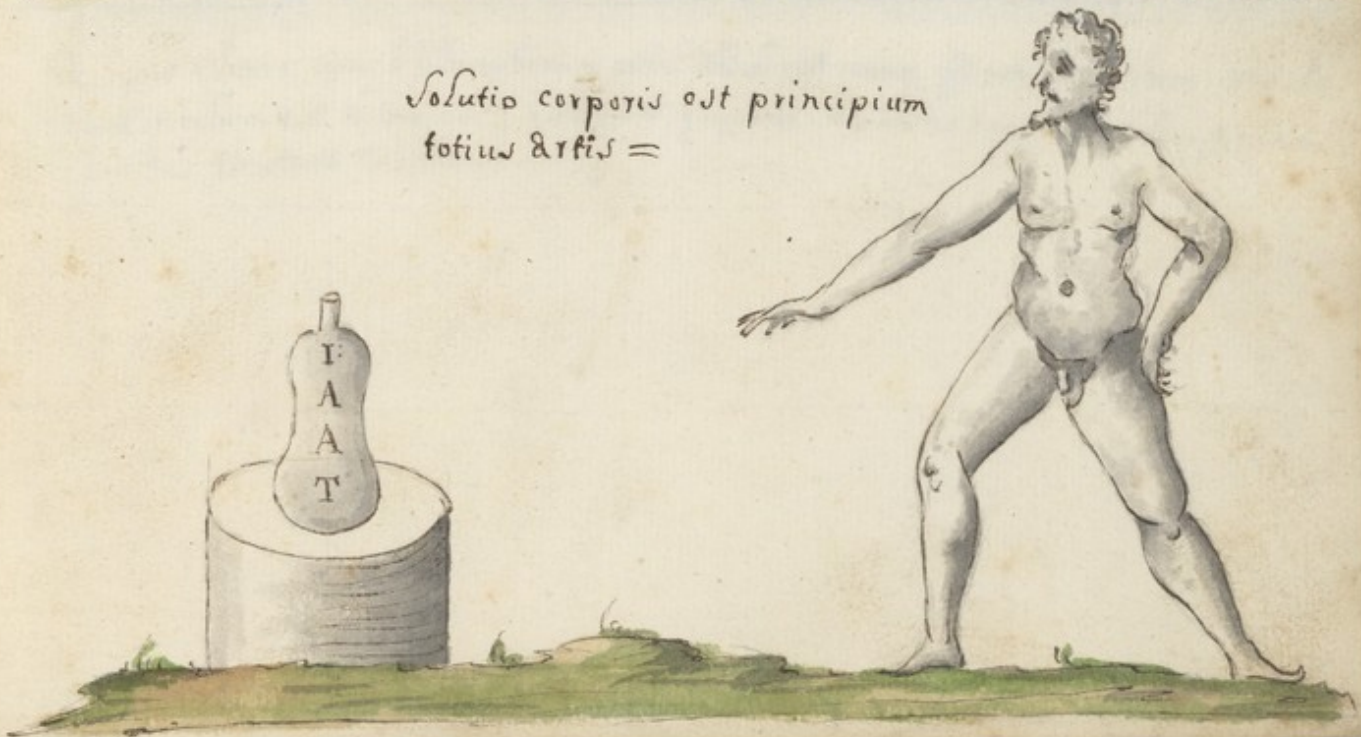 Solutio corporis est principium
totius Artis =
I:
A
A
T